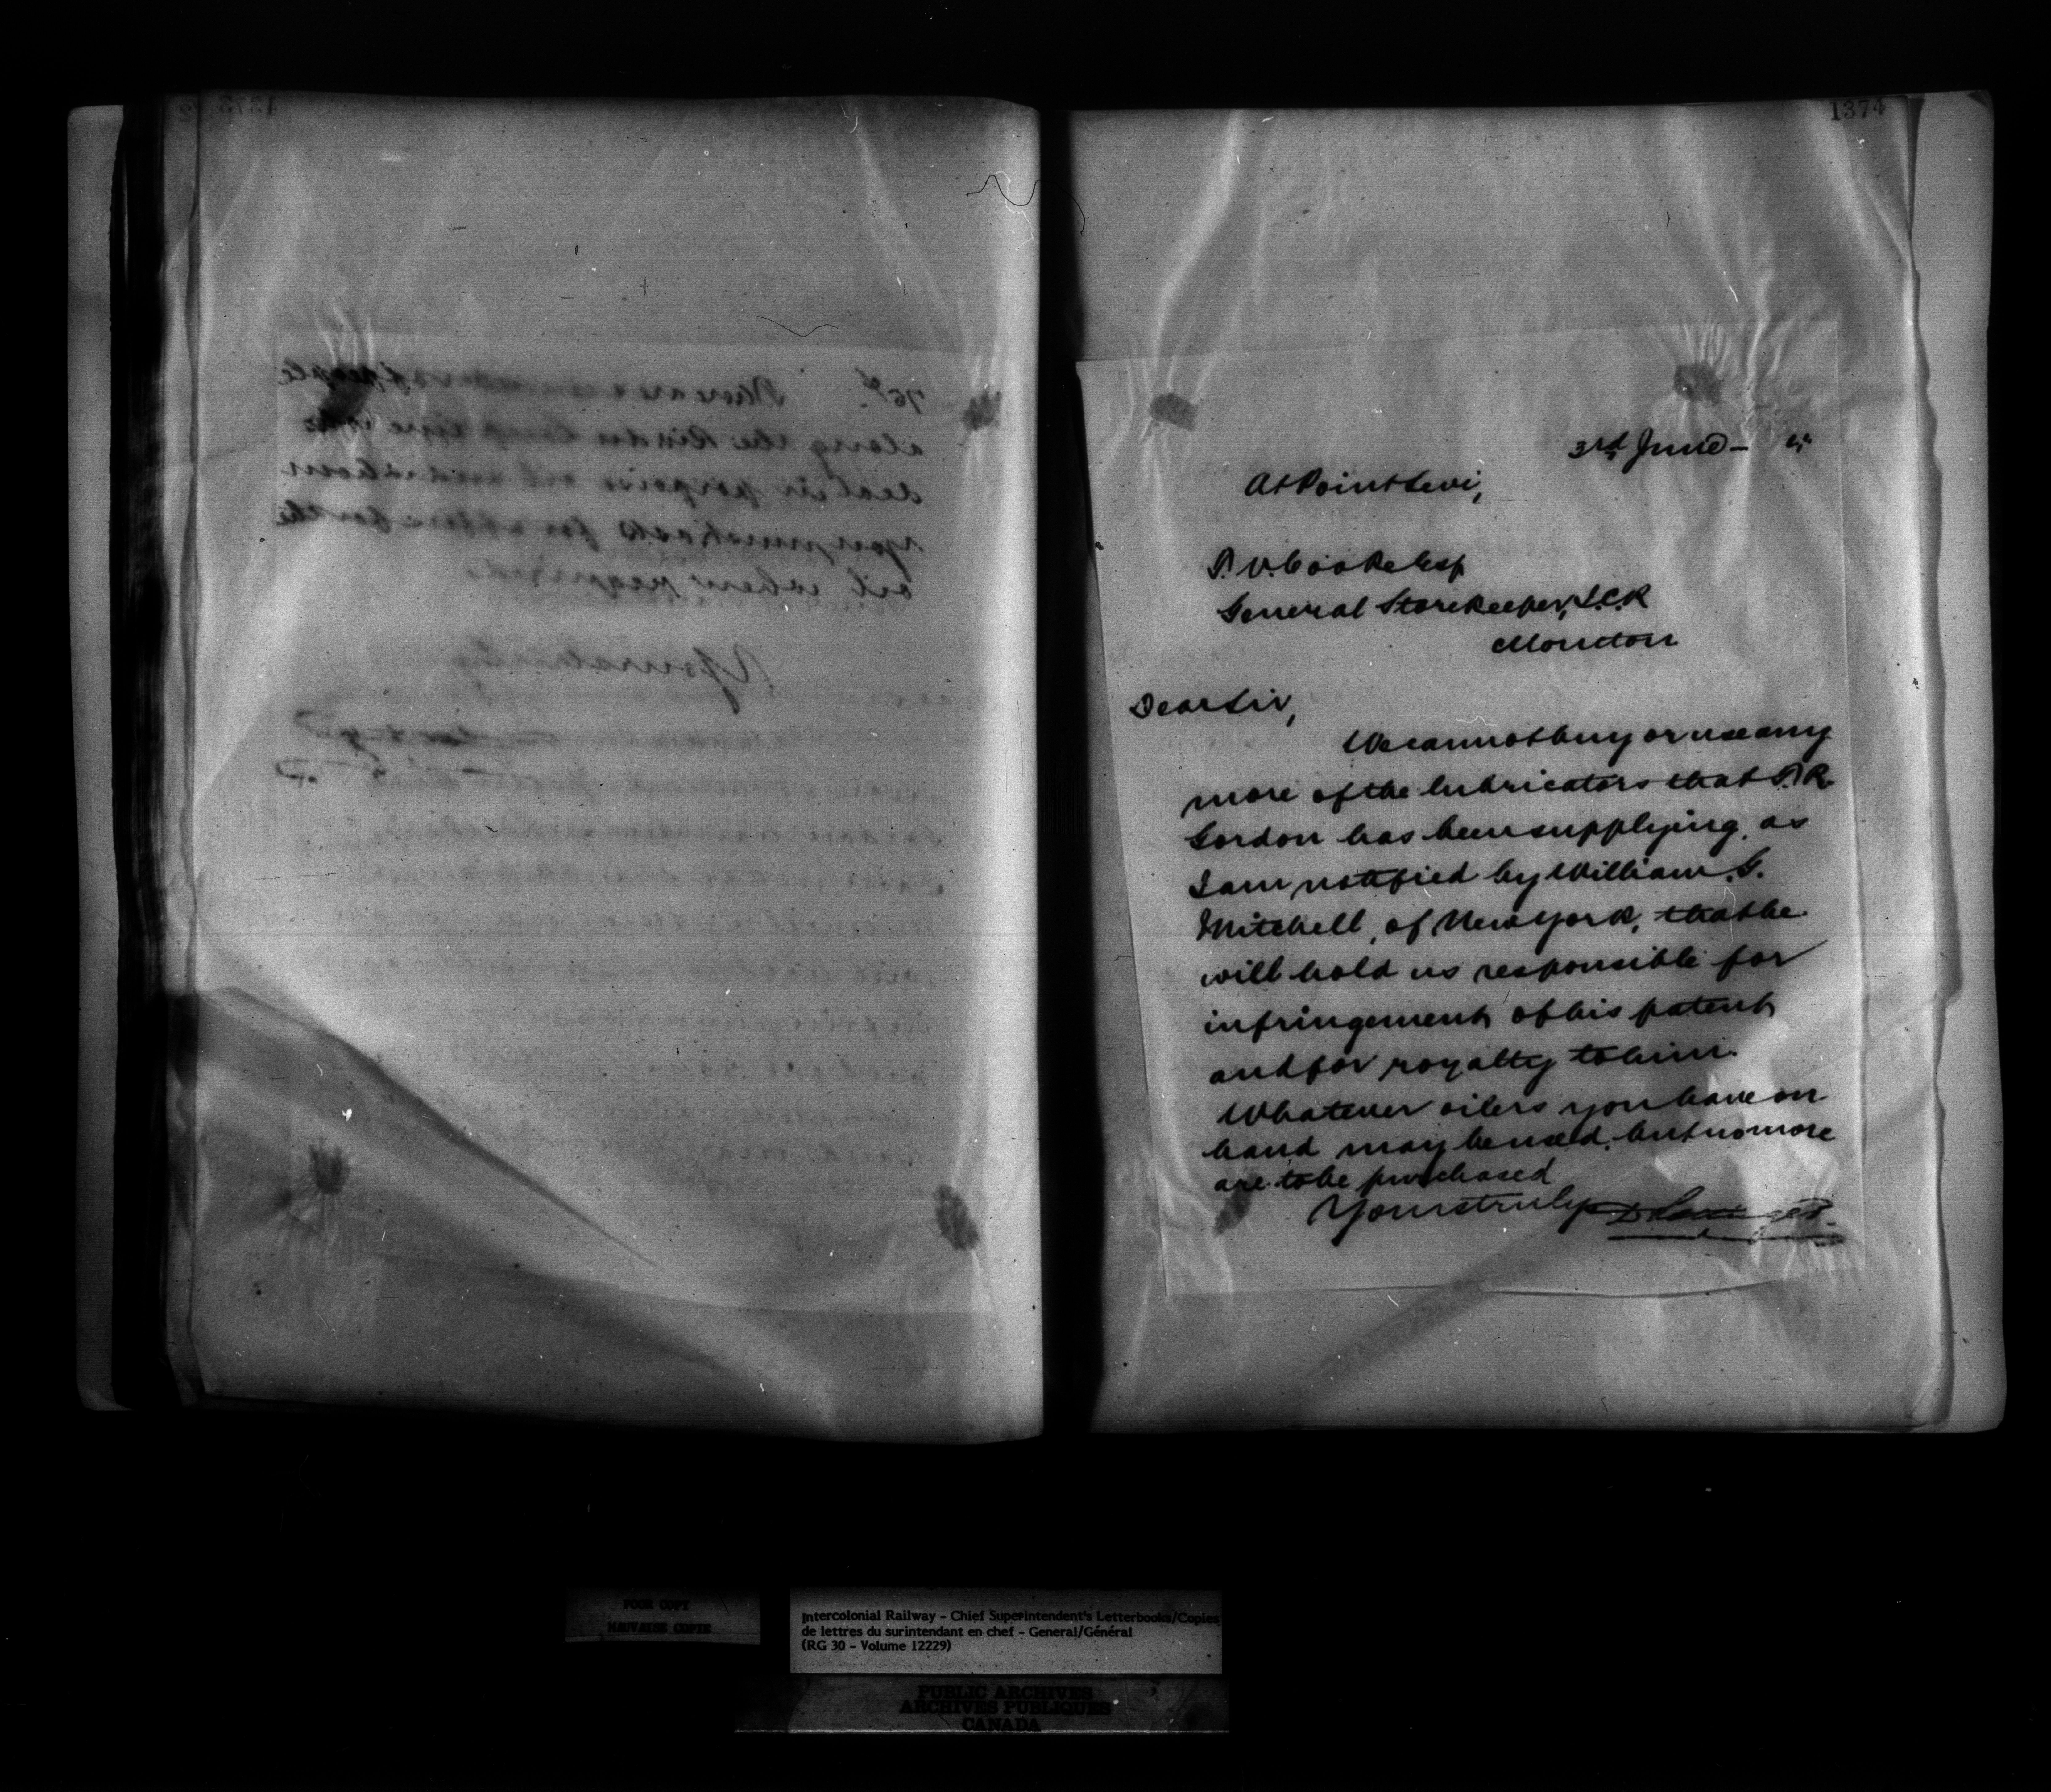 1373
75¢. There are a number of people
along the Riviere who
deal in porpoise oil
you must ask for offers for the
oil when required.
Yours truly
1374
3rd June -
At Point Levi,
T. V. Cooke Esq
General Storekeeper, I.C.R
Moncton
Dear Sir,
We cannot buy or use any
more of the lubricators that T. R.
Gordon has been supplying, as
I am notified by William. G.
Mitchell, of New York, that he
will hold us responsible for
infringement of his patent
and for royalty to him.
Whatever oilers you have on
hand may be used, but no more
are to be purchased
Yours truly D Pottinger
POOR COPY
MAUVAISE COPIE
Intercolonial Railway - Chief Superintendent's Letterbooks/Copies
de lettres du surintendant en chef - General/Général
(RG 30 - Volume 12229)
PUBLIC ARCHIVES
ARCHIVES PUBLIQUES
CANADA